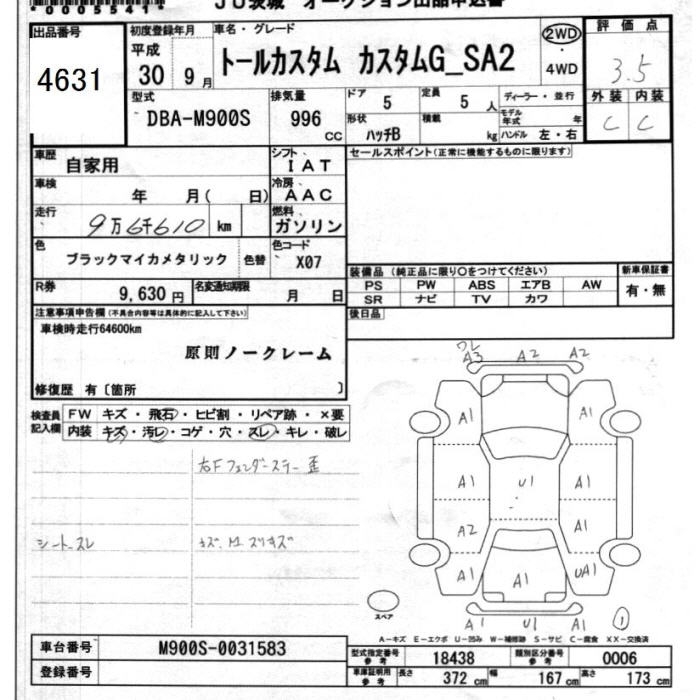 *0005541*
JU茨城 オークション出品申込書
出品番号 4631
初度登録年月 平成 30 9月
車名・グレード トールカスタム カスタムG_SA2
2WD ・ 4WD
評価点 3.5
外装 内装 C C
型式 DBA-M900S
排気量 996 cc
ドア 5 定員 5人 ディーラー・並行
形状 ハッチB 積載 kg モデル年式 年
ハンドル 左・右
車歴 自家用
シフト IAT
セールスポイント(正常に機能するものに限ります)
車検 年 月( 日)
冷房 AAC
走行 9万6千610 km
燃料 ガソリン
色 ブラックマイカメタリック 色替
色コード X07
装備品 (純正品に限り○をつけてください) 新車保証書
PS PW ABS エアB AW 有・無
SR ナビ TV カワ
R券 9,630円 名変通知期限 月 日
後日品
注意事項申告欄(不具合内容等は具体的に記入して下さい)
車検時走行64600km
原則ノークレーム
修復歴 有〔箇所 〕
検査員記入欄 FW キズ・飛石・ヒビ割・リペア跡・×要
内装 キズ・汚レ・コゲ・穴・スレ・キレ・破レ
右Fフェンダーステー歪
シートスレ
ワレ
A3 A2 A2
A1 A1
A1 U1 A1
A2 A1
A1 A1 UA1
A1 U1 A1 1
スペア
A-キズ E-エクボ U-凹み W-補修跡 S-サビ C-腐食 XX-交換済
車台番号 M900S-0031583
型式指定番号 参考 18438 類別区分番号 参考 0006
登録番号
車庫証明用 参考 長さ 372 cm 幅 167 cm 高さ 173 cm